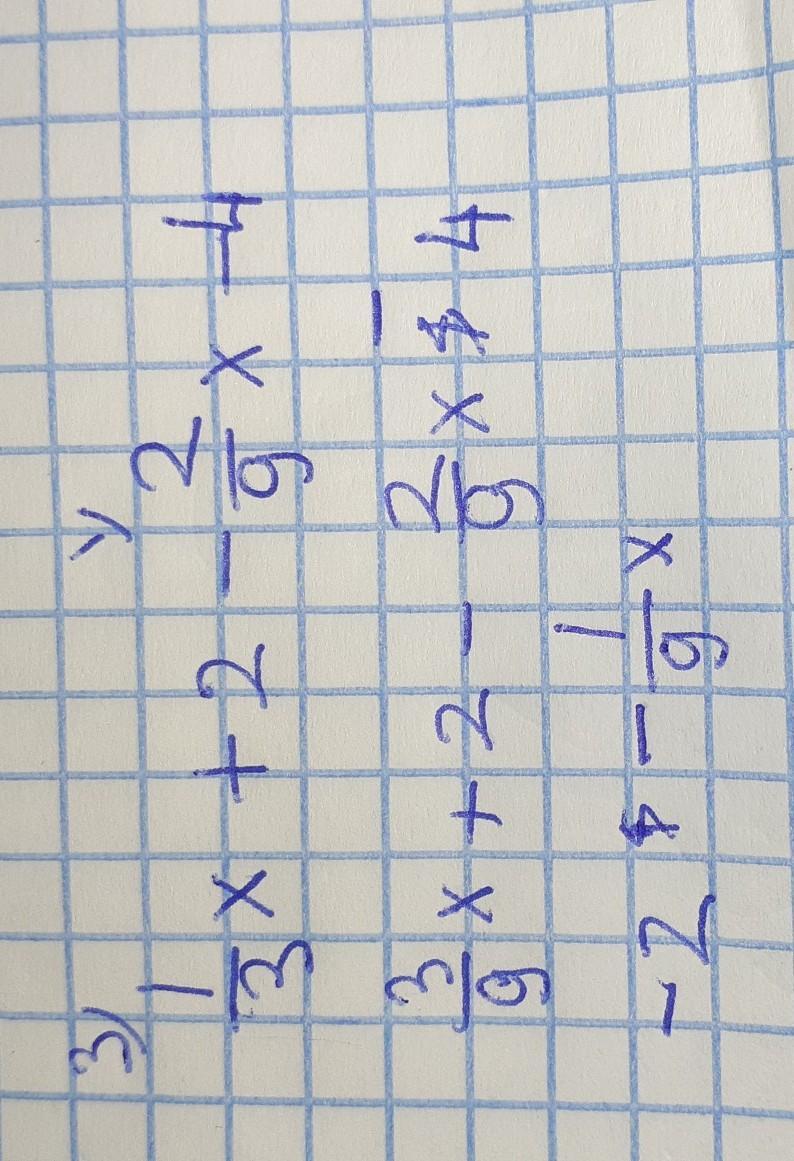 3)
1/3 x + 2 - 2/9 x - 4
3/9 x + 2 - 2/9 x - 4
-2 - 1/9 x